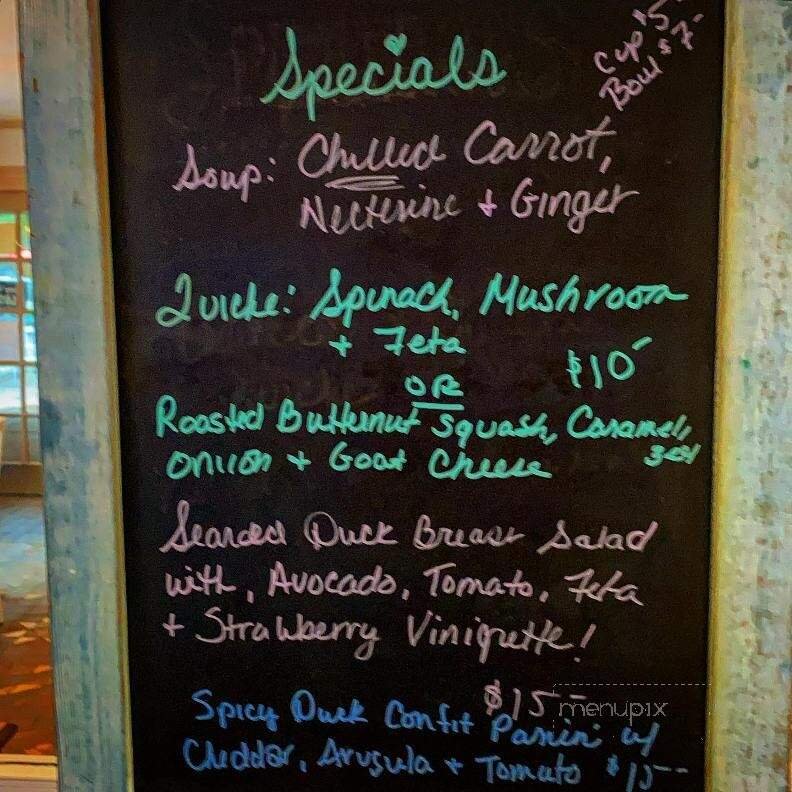 Specials
Cup $5-
Bowl $7-
Soup: Chilled Carrot,
Necterine + Ginger
Quiche: Spinach, Mushroom
+ Feta
$10-
OR
Roasted Butternut Squash, Carameli
zed
Onion + Goat Cheese
Searded Duck Breast Salad
with, Avocado, Tomato, Feta
+ Strawberry Viniqrette!
$15--
menupix
Spicy Duck Confit Panini w/
Cheddar, Arugula + Tomato $15--